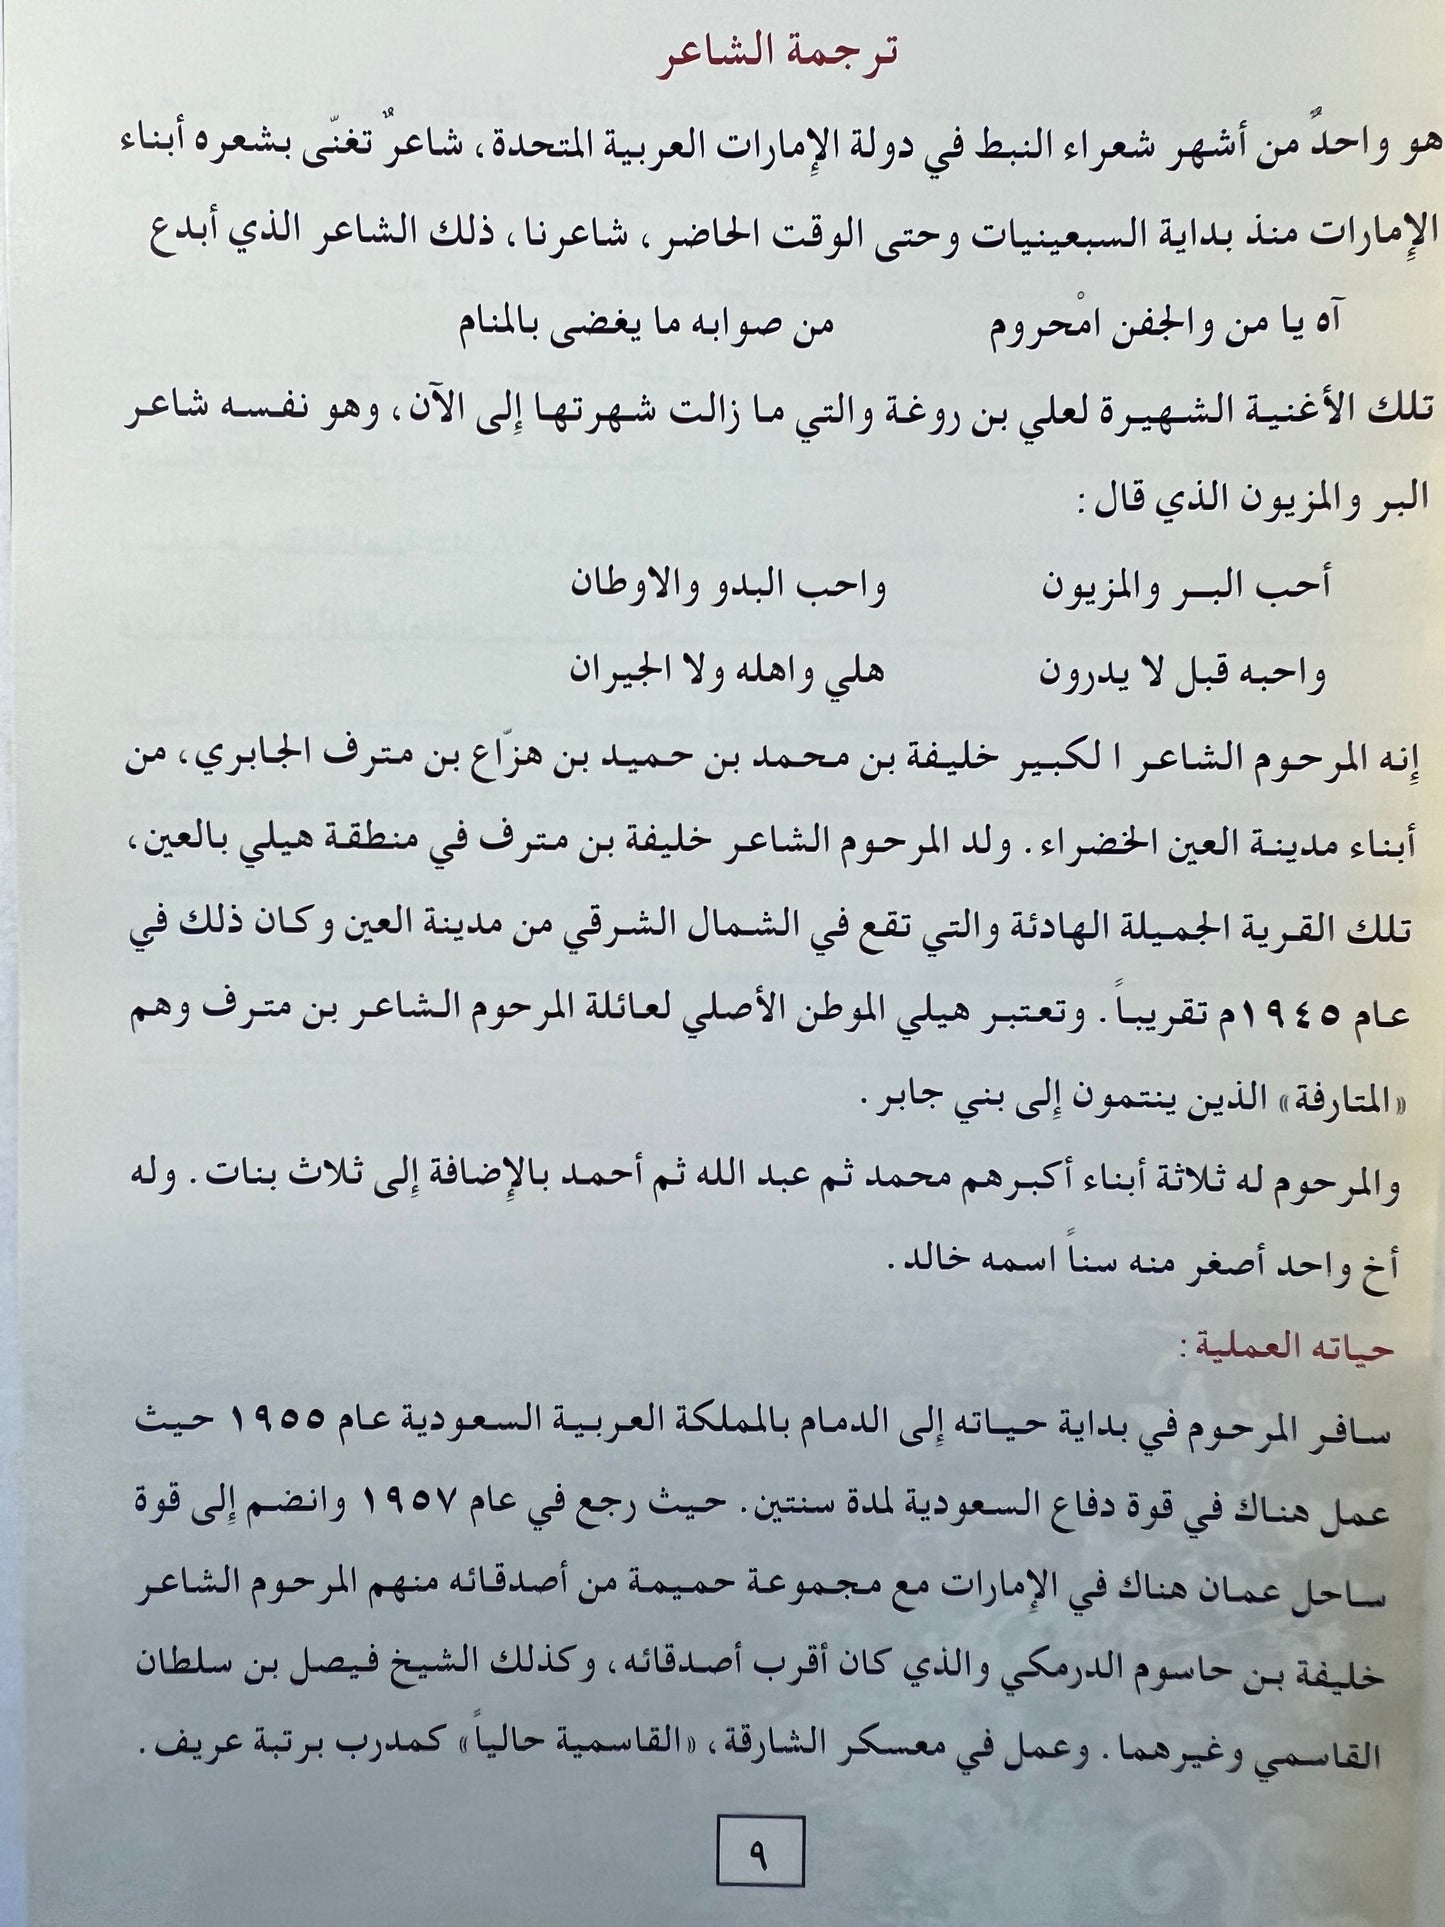 ترجمة الشاعر
هو واحدٌ من أشهر شعراء النبط في دولة الإمارات العربية المتحدة، شاعرٌ تغنّى بشعره أبناء
الإمارات منذ بداية السبعينيات وحتى الوقت الحاضر، شاعرنا، ذلك الشاعر الذي أبدع
آه يا من والجفن امْحروم من صوابه ما يغضى بالمنام
تلك الأغنية الشهيرة لعلي بن روغة والتي ما زالت شهرتها إلى الآن، وهو نفسه شاعر
البر والمزيون الذي قال:
أحب البــر والمزيون واحب البدو والاوطان
واحبه قبل لا يدرون هلي واهله ولا الجيران
إنه المرحوم الشاعر ا لكبير خليفة بن محمد بن حميد بن هزّاع بن مترف الجابري، من
أبناء مدينة العين الخضراء. ولد المرحوم الشاعر خليفة بن مترف في منطقة هيلي بالعين،
تلك القرية الجميلة الهادئة والتي تقع في الشمال الشرقي من مدينة العين وكان ذلك في
عام ١٩٤٥م تقريباً. وتعتبر هيلي الموطن الأصلي لعائلة المرحوم الشاعر بن مترف وهم
«المتارفة» الذين ينتمون إلى بني جابر.
والمرحوم له ثلاثة أبناء أكبرهم محمد ثم عبد الله ثم أحمد بالإضافة إلى ثلاث بنات. وله
أخ واحد أصغر منه سناً اسمه خالد.
حياته العملية:
سافر المرحوم في بداية حياته إلى الدمام بالمملكة العربية السعودية عام ١٩٥٥ حيث
عمل هناك في قوة دفاع السعودية لمدة سنتين. حيث رجع في عام ١٩٥٧ وانضم إلى قوة
ساحل عمان هناك في الإمارات مع مجموعة حميمة من أصدقائه منهم المرحوم الشاعر
خليفة بن حاسوم الدرمكي والذي كان أقرب أصدقائه، وكذلك الشيخ فيصل بن سلطان
القاسمي وغيرهما. وعمل في معسكر الشارقة، «القاسمية حالياً» كمدرب برتبة عريف.
٩